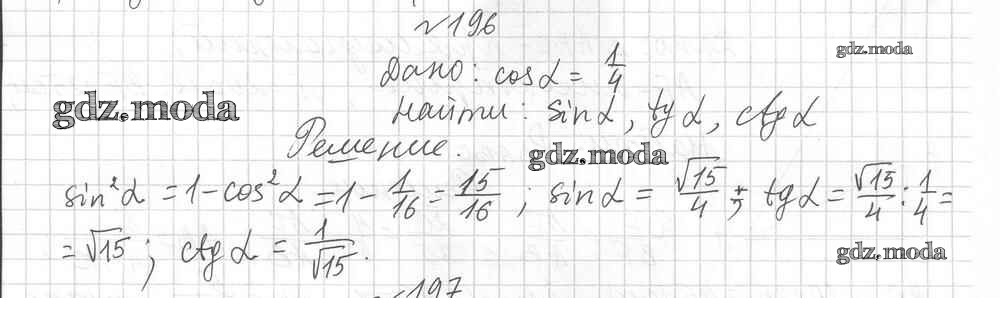 √196
gdz.moda
Дано: cos α = 1/4
gdz.moda
Найти: sin α, tg α, ctg α
Решение.
gdz.moda
sin²α = 1 - cos²α = 1 - 1/16 = 15/16 ; sin α = √15/4 ; tg α = √15/4 : 1/4 =
= √15 ; ctg α = 1/√15 .
gdz.moda
197